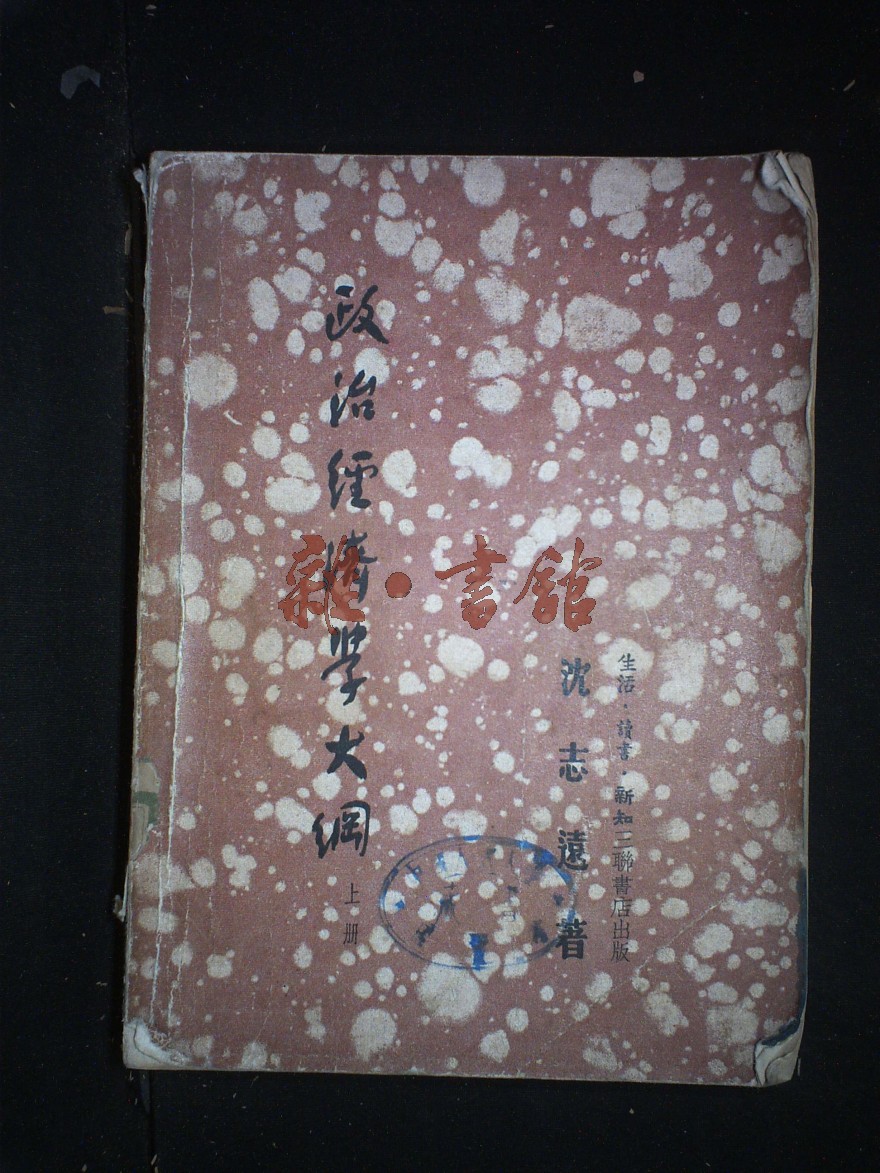 政治經濟学大綱
上册
沈志遠著
生活·讀書·新知三聯書店出版
雜·書館